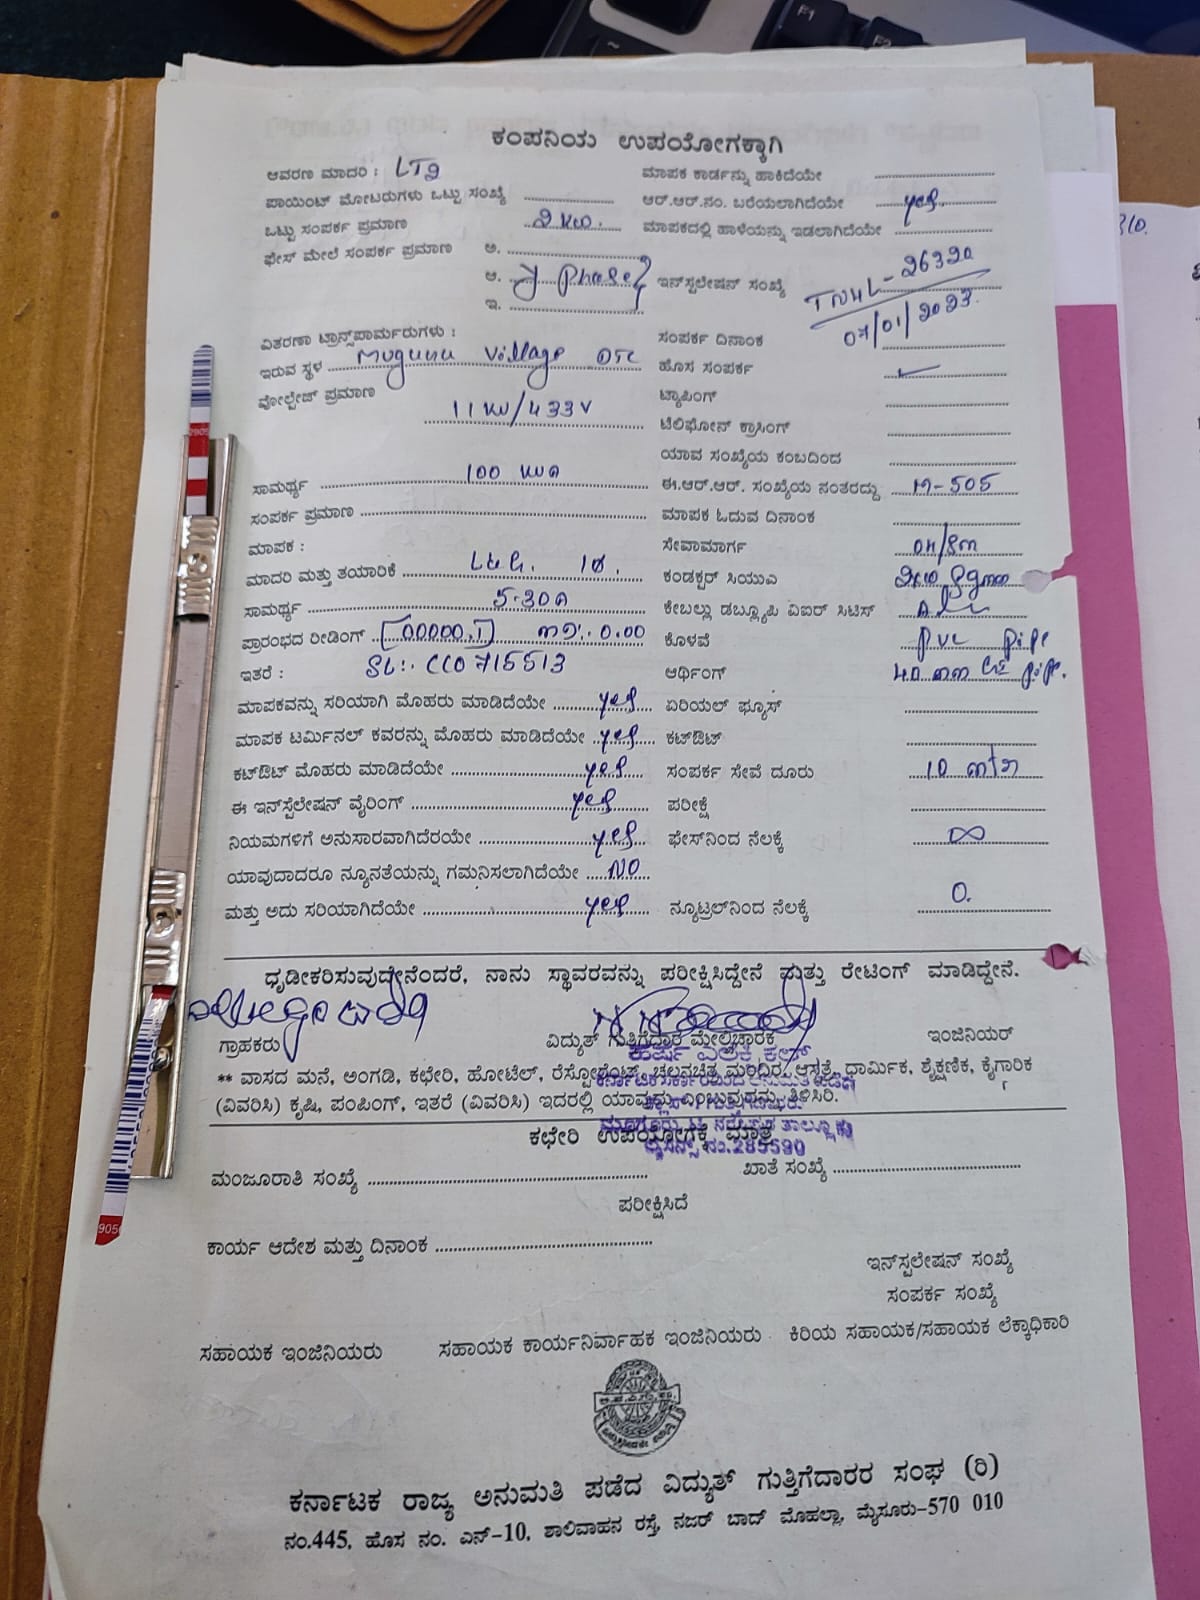 ಕಂಪನಿಯ ಉಪಯೋಗಕ್ಕಾಗಿ
ಆವರಣ ಮಾದರಿ : LT2 ಮಾಪಕ ಕಾರ್ಡನ್ನು ಹಾಕಿದೆಯೇ
ಪಾಯಿಂಟ್ ಮೋಟರುಗಳು ಒಟ್ಟು ಸಂಖ್ಯೆ ಆರ್.ಆರ್.ನಂ. ಬರೆಯಲಾಗಿದೆಯೇ yes.
ಒಟ್ಟು ಸಂಪರ್ಕ ಪ್ರಮಾಣ 2 KW. ಮಾಪಕದಲ್ಲಿ ಹಾಳೆಯನ್ನು ಇಡಲಾಗಿದೆಯೇ
ಫೇಸ್ ಮೇಲೆ ಸಂಪರ್ಕ ಪ್ರಮಾಣ ಅ.
ಆ. Phase ಇನ್‌ಸ್ಟಲೇಷನ್ ಸಂಖ್ಯೆ TNHL-26320
ಇ. 07/01/2023
ವಿತರಣಾ ಟ್ರಾನ್ಸ್‌ಪಾರ್ಮರುಗಳು : ಸಂಪರ್ಕ ದಿನಾಂಕ
ಇರುವ ಸ್ಥಳ Village DTC ಹೊಸ ಸಂಪರ್ಕ
ವೋಲ್ಟೇಜ್ ಪ್ರಮಾಣ 11 KV/433V ಟ್ಯಾಪಿಂಗ್
ಟೆಲಿಫೋನ್ ಕ್ರಾಸಿಂಗ್
ಯಾವ ಸಂಖ್ಯೆಯ ಕಂಬದಿಂದ
ಸಾಮರ್ಥ್ಯ 100 KVA ಈ.ಆರ್.ಆರ್. ಸಂಖ್ಯೆಯ ನಂತರದ್ದು M-505
ಸಂಪರ್ಕ ಪ್ರಮಾಣ ಮಾಪಕ ಓದುವ ದಿನಾಂಕ
ಮಾಪಕ : ಸೇವಾಮಾರ್ಗ OH/SM
ಮಾದರಿ ಮತ್ತು ತಯಾರಿಕೆ L&G. 1Ø. ಕಂಡಕ್ಟರ್ ಸಿಯುಎ
ಸಾಮರ್ಥ್ಯ 5-30A ಕೇಬಲ್ಲು ಡಬ್ಲ್ಯೂಪಿ ವಿಐರ್ ಸಿಟಿಸ್
ಪ್ರಾರಂಭದ ರೀಡಿಂಗ್ 00000.1 MD:. 0.00 ಕೊಳವೆ PVC pipe
ಇತರೆ : SL:. CCO 715513 ಆರ್ಥಿಂಗ್ 40 mm GI pipe.
ಮಾಪಕವನ್ನು ಸರಿಯಾಗಿ ಮೊಹರು ಮಾಡಿದೆಯೇ yes ಏರಿಯಲ್ ಫ್ಯೂಸ್
ಮಾಪಕ ಟರ್ಮಿನಲ್ ಕವರನ್ನು ಮೊಹರು ಮಾಡಿದೆಯೇ yes ಕಟ್‌ಔಟ್
ಕಟ್‌ಔಟ್ ಮೊಹರು ಮಾಡಿದೆಯೇ yes ಸಂಪರ್ಕ ಸೇವೆ ದೂರು 10 mtr
ಈ ಇನ್‌ಸ್ಟೆಲೇಷನ್ ವೈರಿಂಗ್ yes ಪರೀಕ್ಷೆ
ನಿಯಮಗಳಿಗೆ ಅನುಸಾರವಾಗಿದೆರಯೇ yes ಫೇಸ್‌ನಿಂದ ನೆಲಕ್ಕೆ ∞
ಯಾವುದಾದರೂ ನ್ಯೂನತೆಯನ್ನು ಗಮನಿಸಲಾಗಿದೆಯೇ NO
ಮತ್ತು ಅದು ಸರಿಯಾಗಿದೆಯೇ yes ನ್ಯೂಟ್ರಲ್‌ನಿಂದ ನೆಲಕ್ಕೆ 0.
ಧೃಡೀಕರಿಸುವುದೇನೆಂದರೆ, ನಾನು ಸ್ಥಾವರವನ್ನು ಪರೀಕ್ಷಿಸಿದ್ದೇನೆ ಮತ್ತು ರೇಟಿಂಗ್ ಮಾಡಿದ್ದೇನೆ.
ಗ್ರಾಹಕರು ವಿದ್ಯುತ್ ಗುತ್ತಿಗೆದಾರ ಮೇಲ್ವಿಚಾರಕ ಇಂಜಿನಿಯರ್
** ವಾಸದ ಮನೆ, ಅಂಗಡಿ, ಕಛೇರಿ, ಹೋಟೆಲ್, ರೆಸ್ಟೋರೆಂಟ್, ಚಲನಚಿತ್ರ ಮಂದಿರ, ಆಸ್ಪತ್ರೆ, ಧಾರ್ಮಿಕ, ಶೈಕ್ಷಣಿಕ, ಕೈಗಾರಿಕ
(ವಿವರಿಸಿ) ಕೃಷಿ, ಪಂಪಿಂಗ್, ಇತರೆ (ವಿವರಿಸಿ) ಇದರಲ್ಲಿ ಯಾವುದು ಎಂಬುವುದನ್ನು ತಿಳಿಸಿರಿ.
ಕಛೇರಿ ಉಪಯೋಗಕ್ಕೆ ಮಾತ್ರ
ಲೈಸೆನ್ಸ್ ನಂ.285590
ಮಂಜೂರಾತಿ ಸಂಖ್ಯೆ ಖಾತೆ ಸಂಖ್ಯೆ
ಪರೀಕ್ಷಿಸಿದೆ
ಕಾರ್ಯ ಆದೇಶ ಮತ್ತು ದಿನಾಂಕ
ಇನ್‌ಸ್ಟಲೇಷನ್ ಸಂಖ್ಯೆ
ಸಂಪರ್ಕ ಸಂಖ್ಯೆ
ಸಹಾಯಕ ಇಂಜಿನಿಯರು ಸಹಾಯಕ ಕಾರ್ಯನಿರ್ವಾಹಕ ಇಂಜಿನಿಯರು ಕಿರಿಯ ಸಹಾಯಕ/ಸಹಾಯಕ ಲೆಕ್ಕಾಧಿಕಾರಿ
ಕರ್ನಾಟಕ ರಾಜ್ಯ ಅನುಮತಿ ಪಡೆದ ವಿದ್ಯುತ್ ಗುತ್ತಿಗೆದಾರರ ಸಂಘ (ರಿ)
ನಂ.445, ಹೊಸ ನಂ. ಎನ್-10, ಶಾಲಿವಾಹನ ರಸ್ತೆ, ನಜರ್ ಬಾದ್ ಮೊಹಲ್ಲಾ, ಮೈಸೂರು-570 010